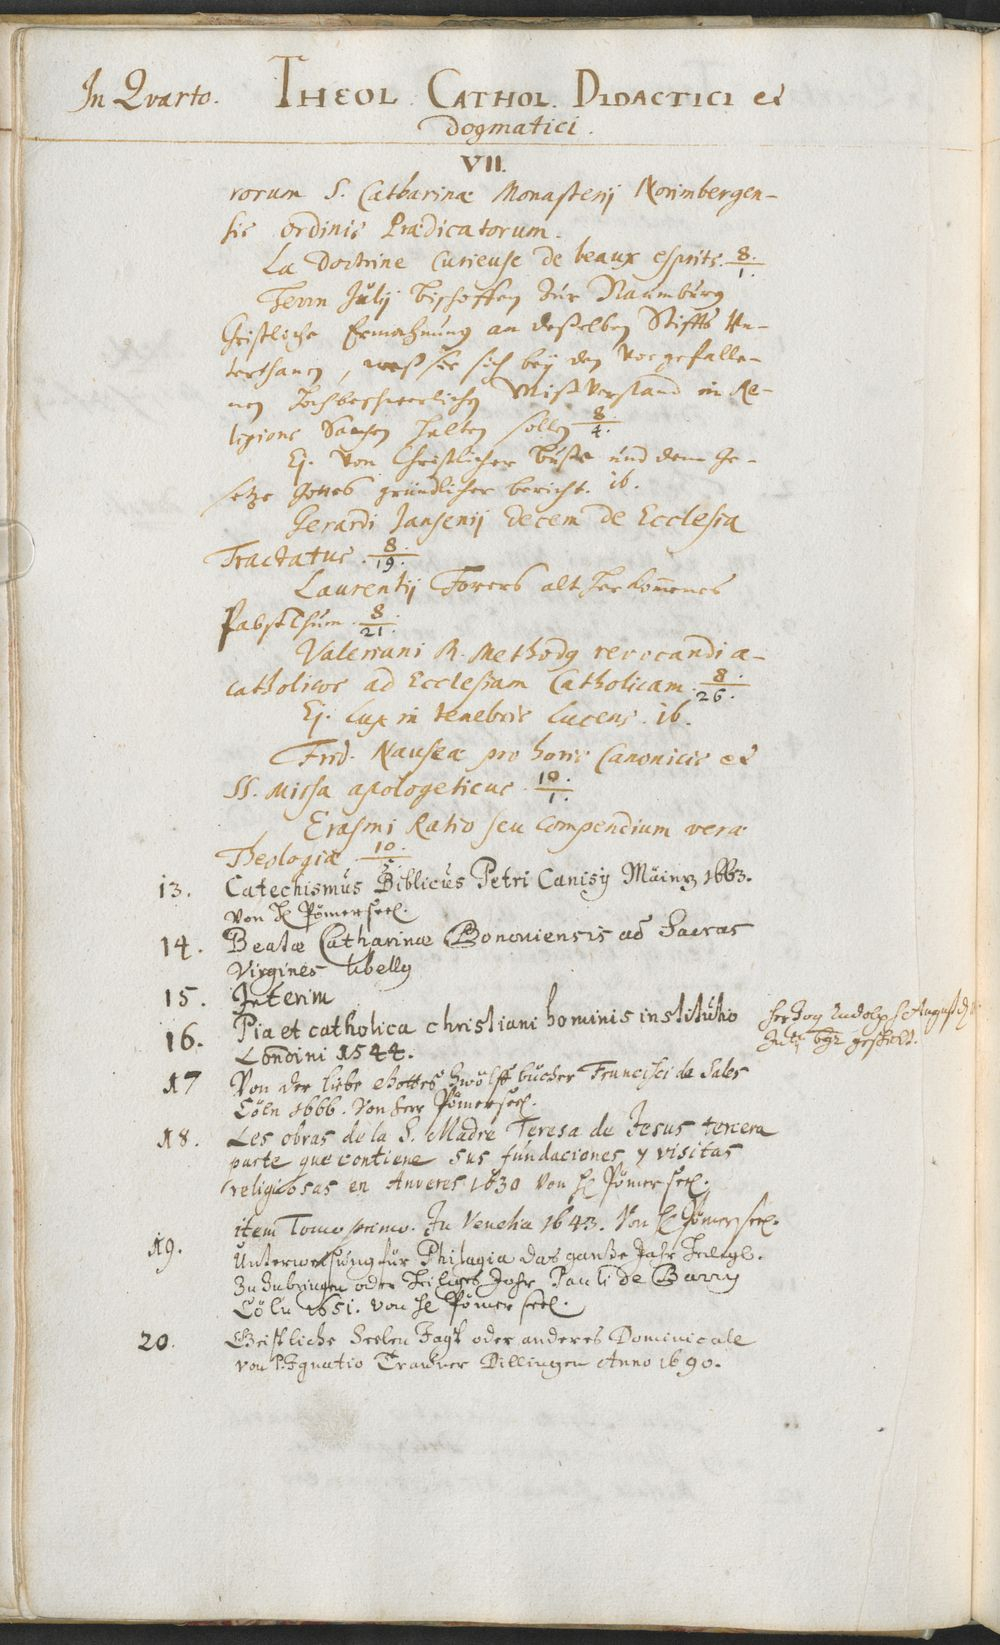 In Qvarto. THEOL. CATHOL. DIDACTICI et
dogmatici.
VII.
rorum S. Catharinæ Monasterij Norimbergen-
sis ordinis Prædicatorum.
La Doctrine Curieuse de beaux esprits. 8./1.
Herrn Julij Bischoffen zur Naumburg
Geistliche Ermahnung an desselben Stiffts Un-
terthanen, weß sie sich bey den vorgefalle-
nen hochbeschwerlichen Mißverstand in Re-
ligions Sachen halten sollen 8/4.
Ej. Von Christlicher Busse und dem Ge-
setze Gottes gründlicher bericht. ib.
Gerardi Jansenij decem de Ecclesia
Tractatus. 8./19.
Laurentij Forers alt herkom̅enes
Pabstthum. 8./21.
Valeriani M. Methodg revocandi a-
catholicos ad Ecclesiam Catholicam. 8./26.
Ej. Lux in tenebris lucens. ib.
Frid. Nauseæ pro horis Canonicis et
SS. Missa apologeticus. 10./1.
Erasmi Ratio seu Compendium veræ
Theologiæ. 10./5.
13. Catechismus Biblicus Petri Canisy Mäintz 1663.
Von H Pömer seel.
14. Beatæ Catharinæ Bononiensis ad Sacras
Virgines libellg
15. Interim
16. Pia et catholica christiani hominis institutio
Londini 1544.
Hertzog Rudolph August
geschickt.
17 Von der liebe Gottes Zwölff bücher Francisci de Sales
Cöln 1666. Von Herr Pömer seel.
18. Les obras de la S. Madre Teresa de Jesus tercera
parte que contiene sus fundaciones y visitas
religiosas en Anveres 1630 Von H Pömer seel.
item Tomo primo. In Venetia 1643. Von H Pömer seel.
19. Unterweisung für Philagia das gantze Jahr heiligl.
Zu Zubringen oder Heiliges Jahr Pauli de Barry
Cöln 1651. von H Pömer seel.
20. Geistliche Seelen Jagt oder anderes Dominicale
von P. Ignatio Trauner Dillingen Anno 1690.